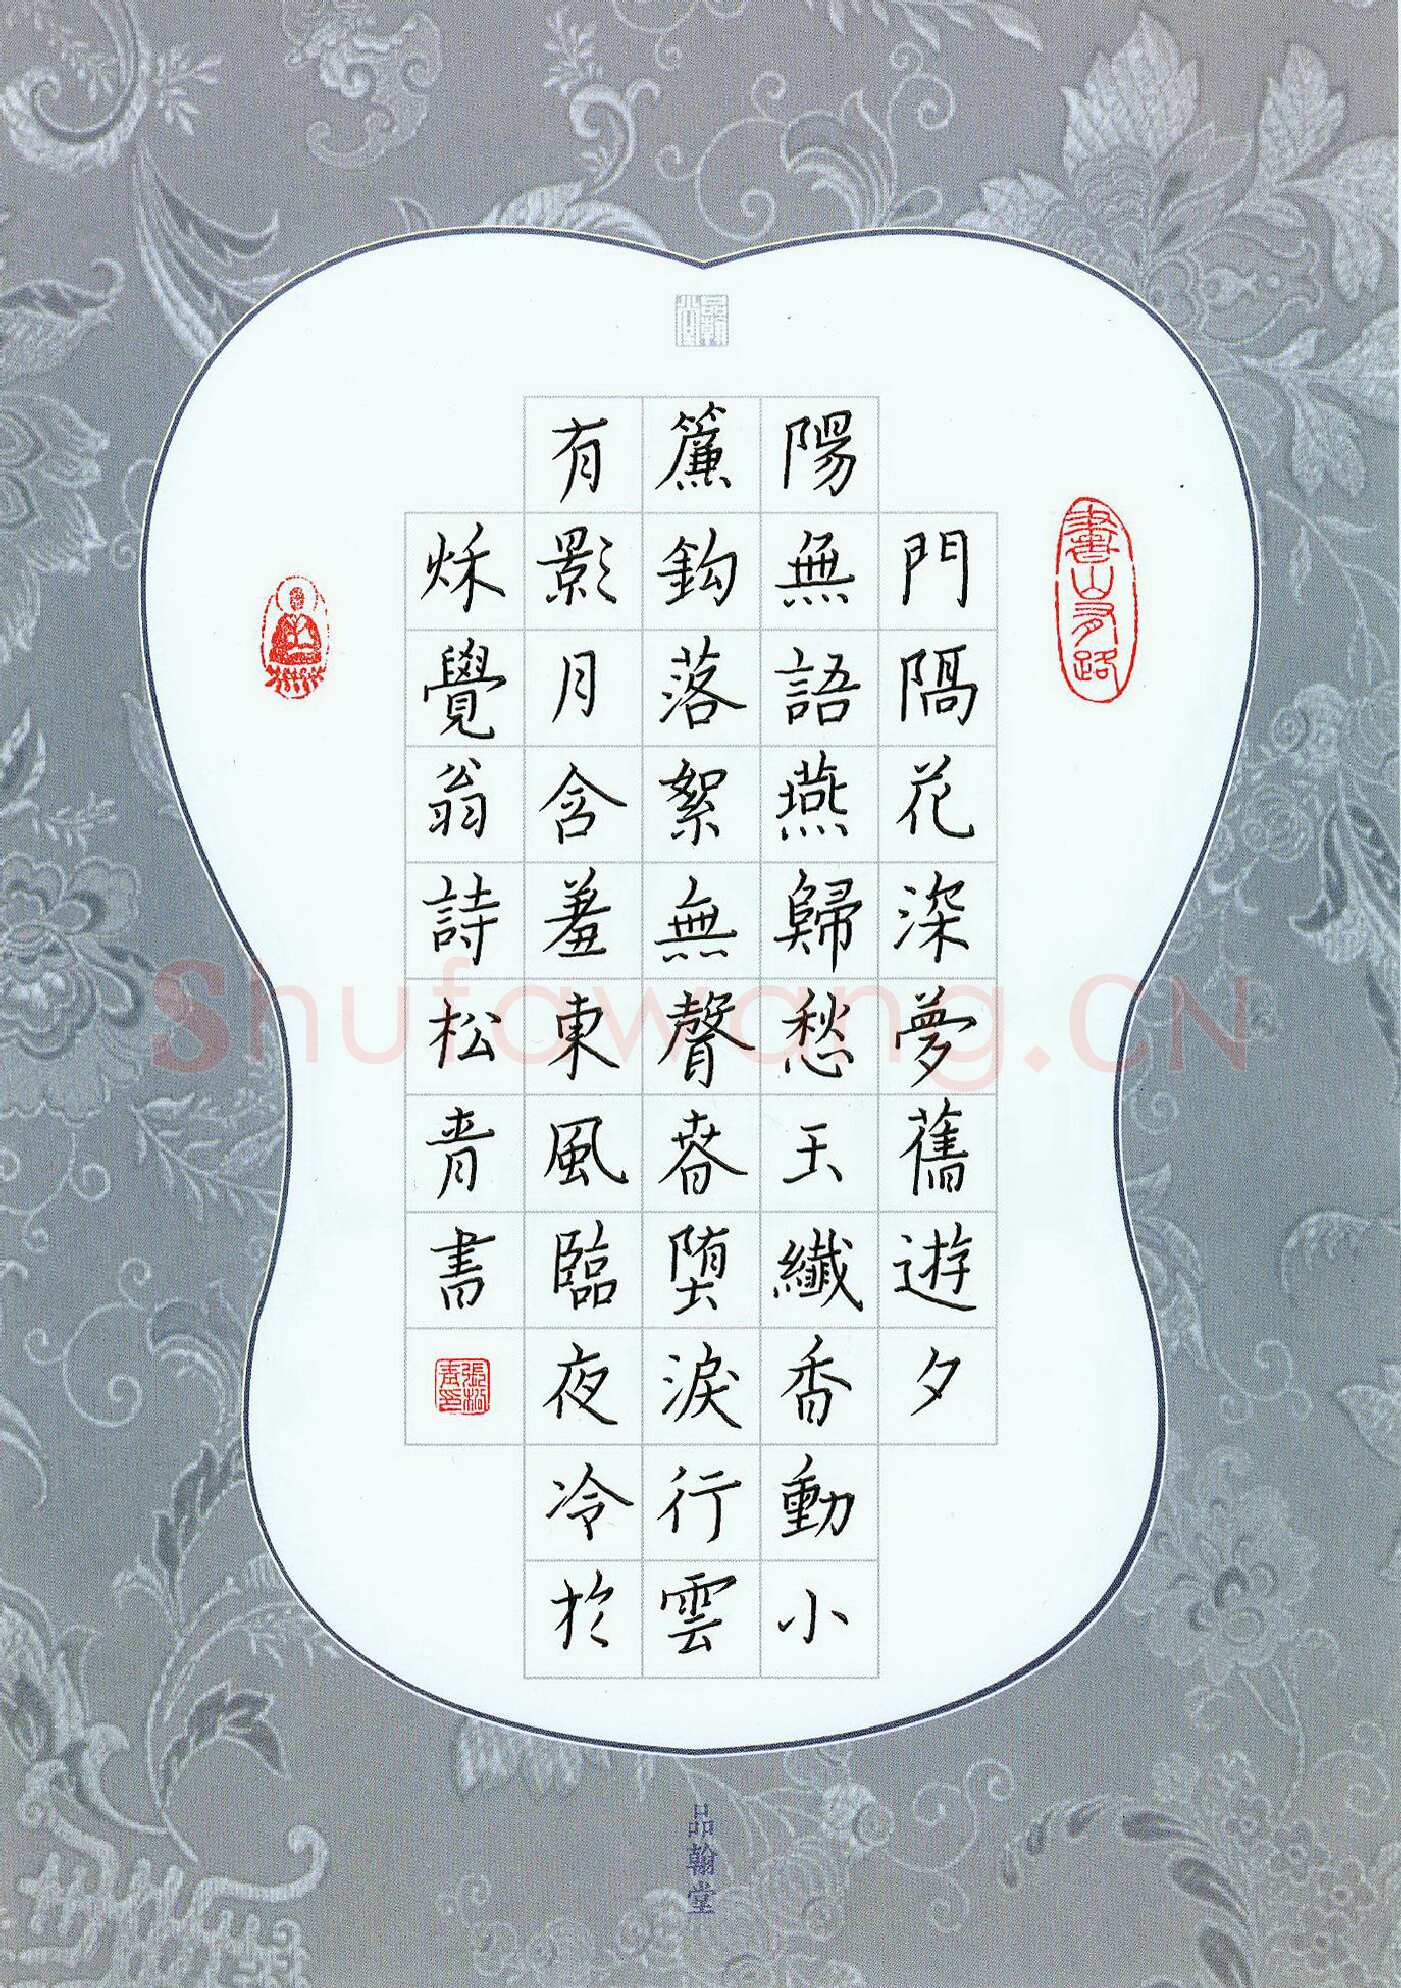 門隔花深夢舊遊夕
陽無語燕歸愁玉纖香動小
簾鈎落絮無聲春墮淚行雲
有影月含羞東風臨夜冷於
秌覺翁詩松青書
書山有路
張松青印
品翰堂
品翰堂
Shufawang.CN